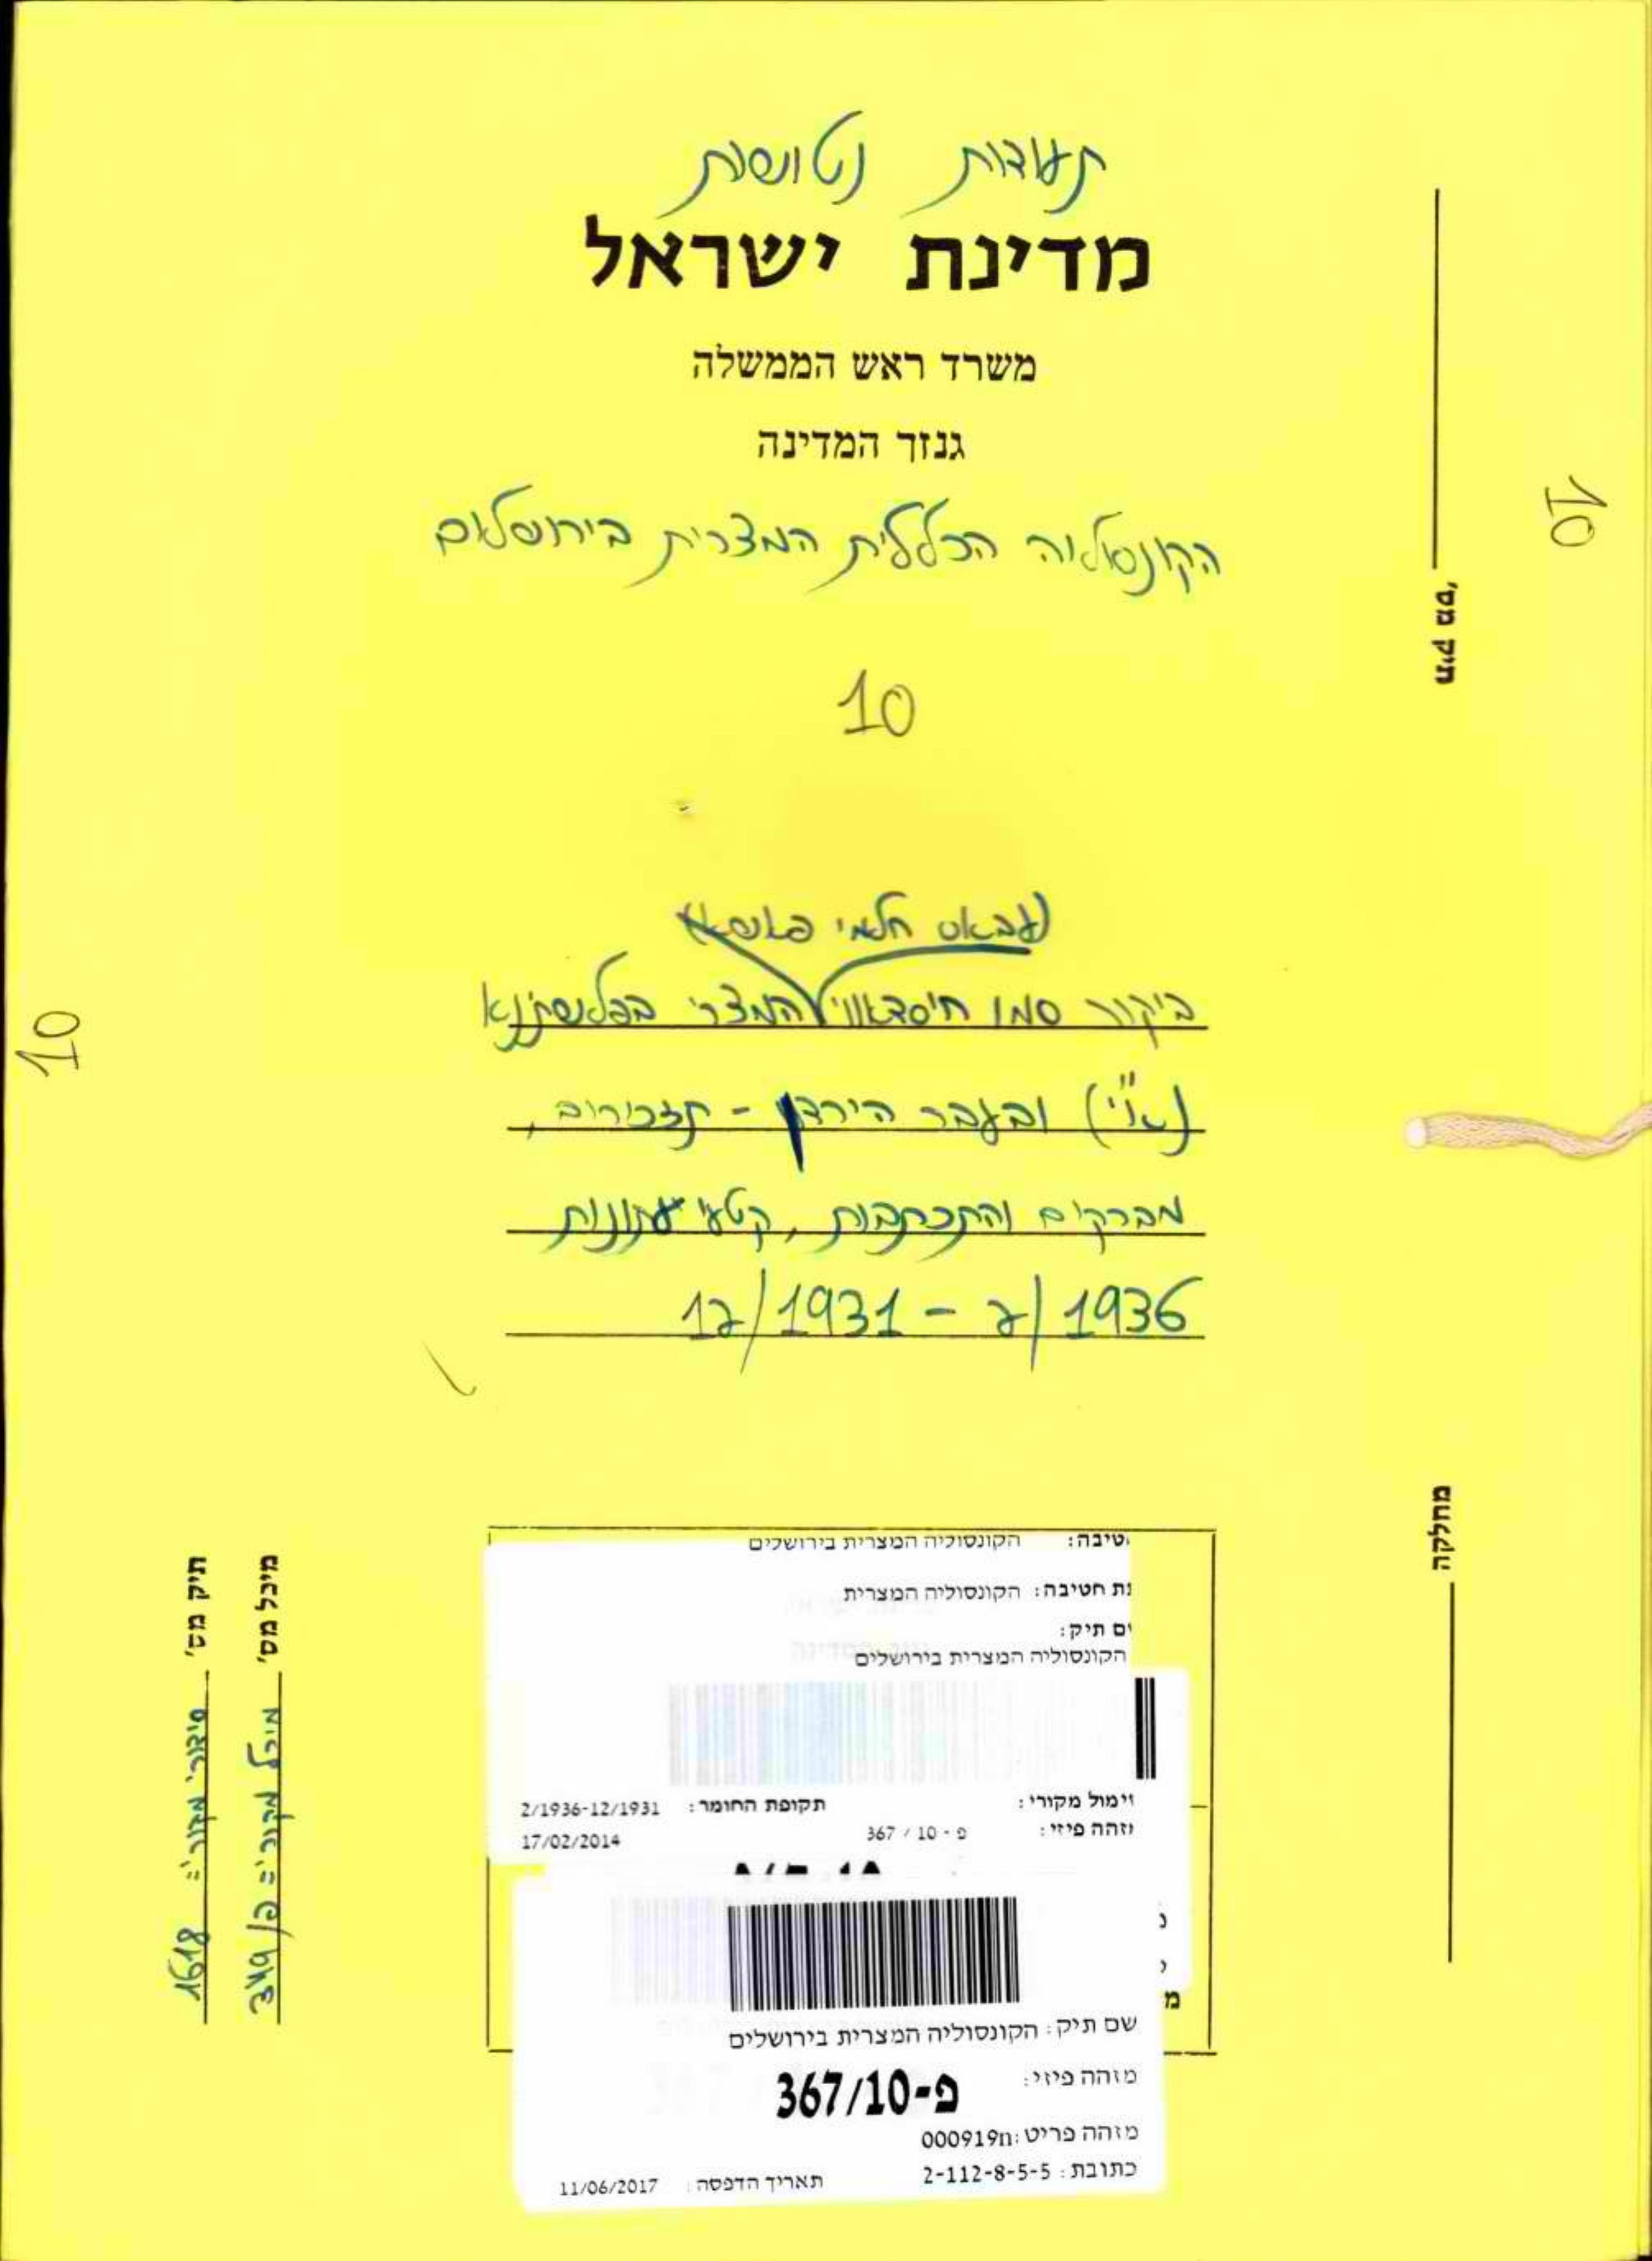 תעודות נטושות
מדינת ישראל
משרד ראש הממשלה
גנזך המדינה
הקונסוליה הכללית המצרית בירושלים
10
(עבאס חלמי פאשא)
ביקור סמו ח'סדאווי המצרי בפלשתינא
(א"י) ובעבר הירדן - תזכירים,
מברקים והתכתבות, קטעי עתונות
12/1931 - 2/1936
תיק מס'
10
10
מחלקה
תיק מס' סידורי מקורי: 1618
מיכל מס' מיכל מקורי: פ/ 349
טיבה: הקונסוליה המצרית בירושלים
ת חטיבה: הקונסוליה המצרית
ם תיק:
הקונסוליה המצרית בירושלים
ימול מקורי: תקופת החומר: 2/1936-12/1931
זהה פיזי: פ - 10 / 367 17/02/2014
שם תיק: הקונסוליה המצרית בירושלים
מזהה פיזי: פ-367/10
מזהה פריט: 000919n
כתובת: 2-112-8-5-5 תאריך הדפסה: 11/06/2017